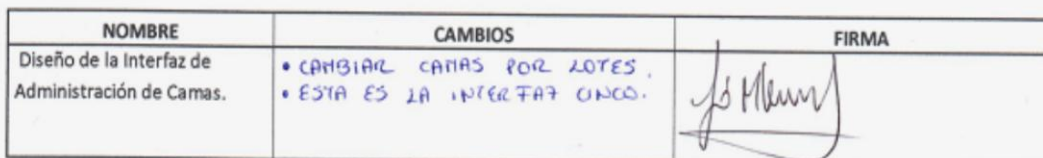 NOMBRE CAMBIOS FIRMA
Diseño de la Interfaz de
Administración de Camas.
• CAMBIAR CAMAS POR LOTES.
• ESTA ES LA INTERFAZ CINCO.